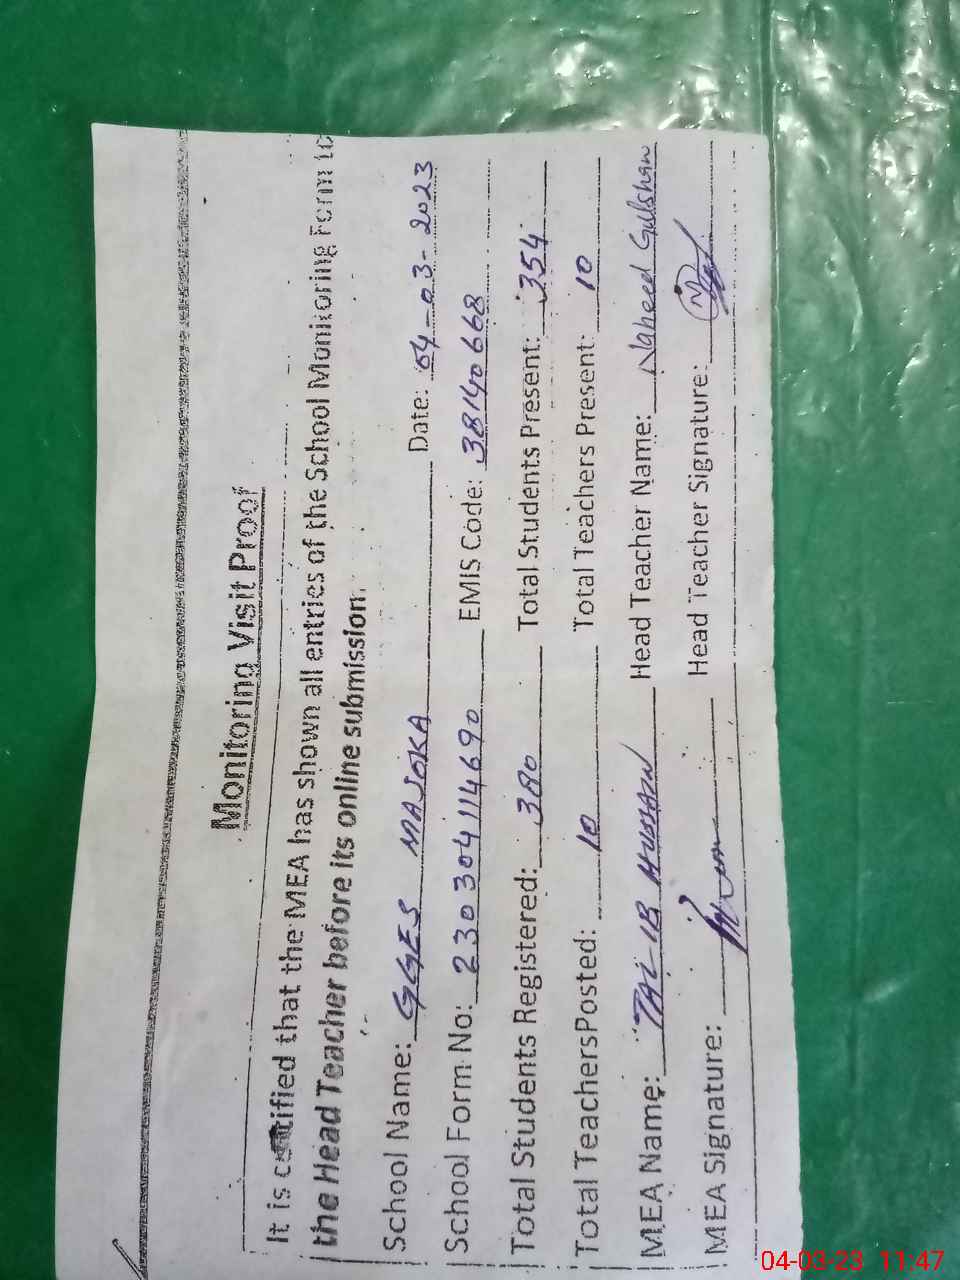 Monitoring Visit Proof
It is certified that the MEA has shown all entries of the School Monitoring Form to
the Head Teacher before its online submission.
School Name: GGES MAJOKA Date: 04-03-2023
School Form No: 230304114690 EMIS Code: 38140668
Total Students Registered: 380 Total Students Present: 354
Total Teachers Posted: 10 Total Teachers Present: 10
MEA Name: HUSSAIN Head Teacher Name: Naheed Gulshan
MEA Signature: Head Teacher Signature:
04-03-23 11:47